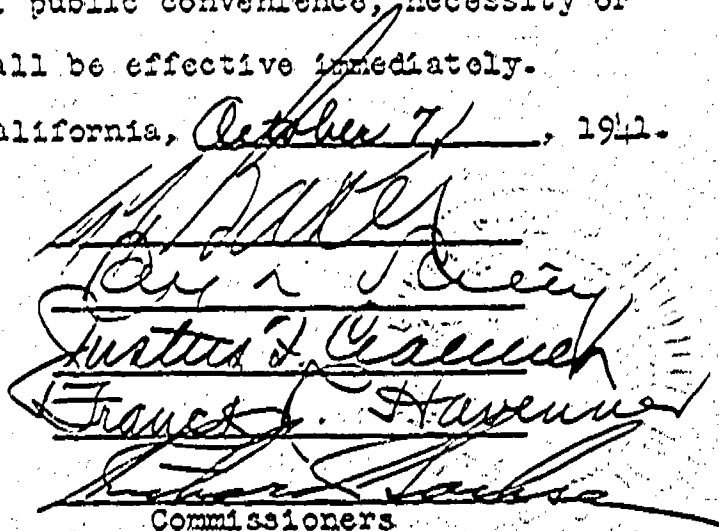 public convenience, necessity or
all be effective immediately.
alifornia, October 7, 1941.
Baker
Ray L. Riley
Justus F. Craemer
Franck R. Havenner
Richard Sachse
Commissioners